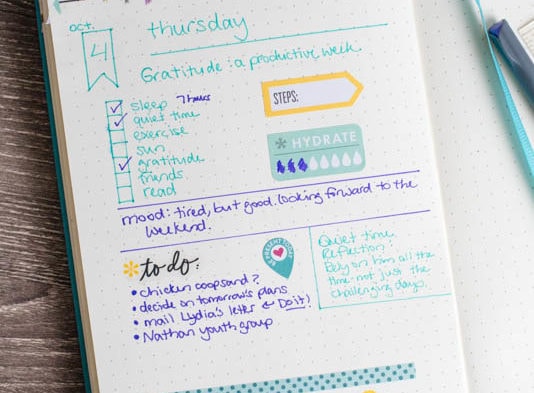 oct.
4
thursday
Gratitude: a productive week
STEPS:
sleep 7 hours
quiet time
exercise
sun
gratitude
friends
read
* HYDRATE
mood: tired, but good. looking forward to the
weekend.
*to do:
• chicken coop sand?
• decide on tomorrow's plans
• mail Lydia's letter & Do it!
• Nathan youth group
Quiet time
Reflection:
Rely on him all the
time-not just the
challenging days.